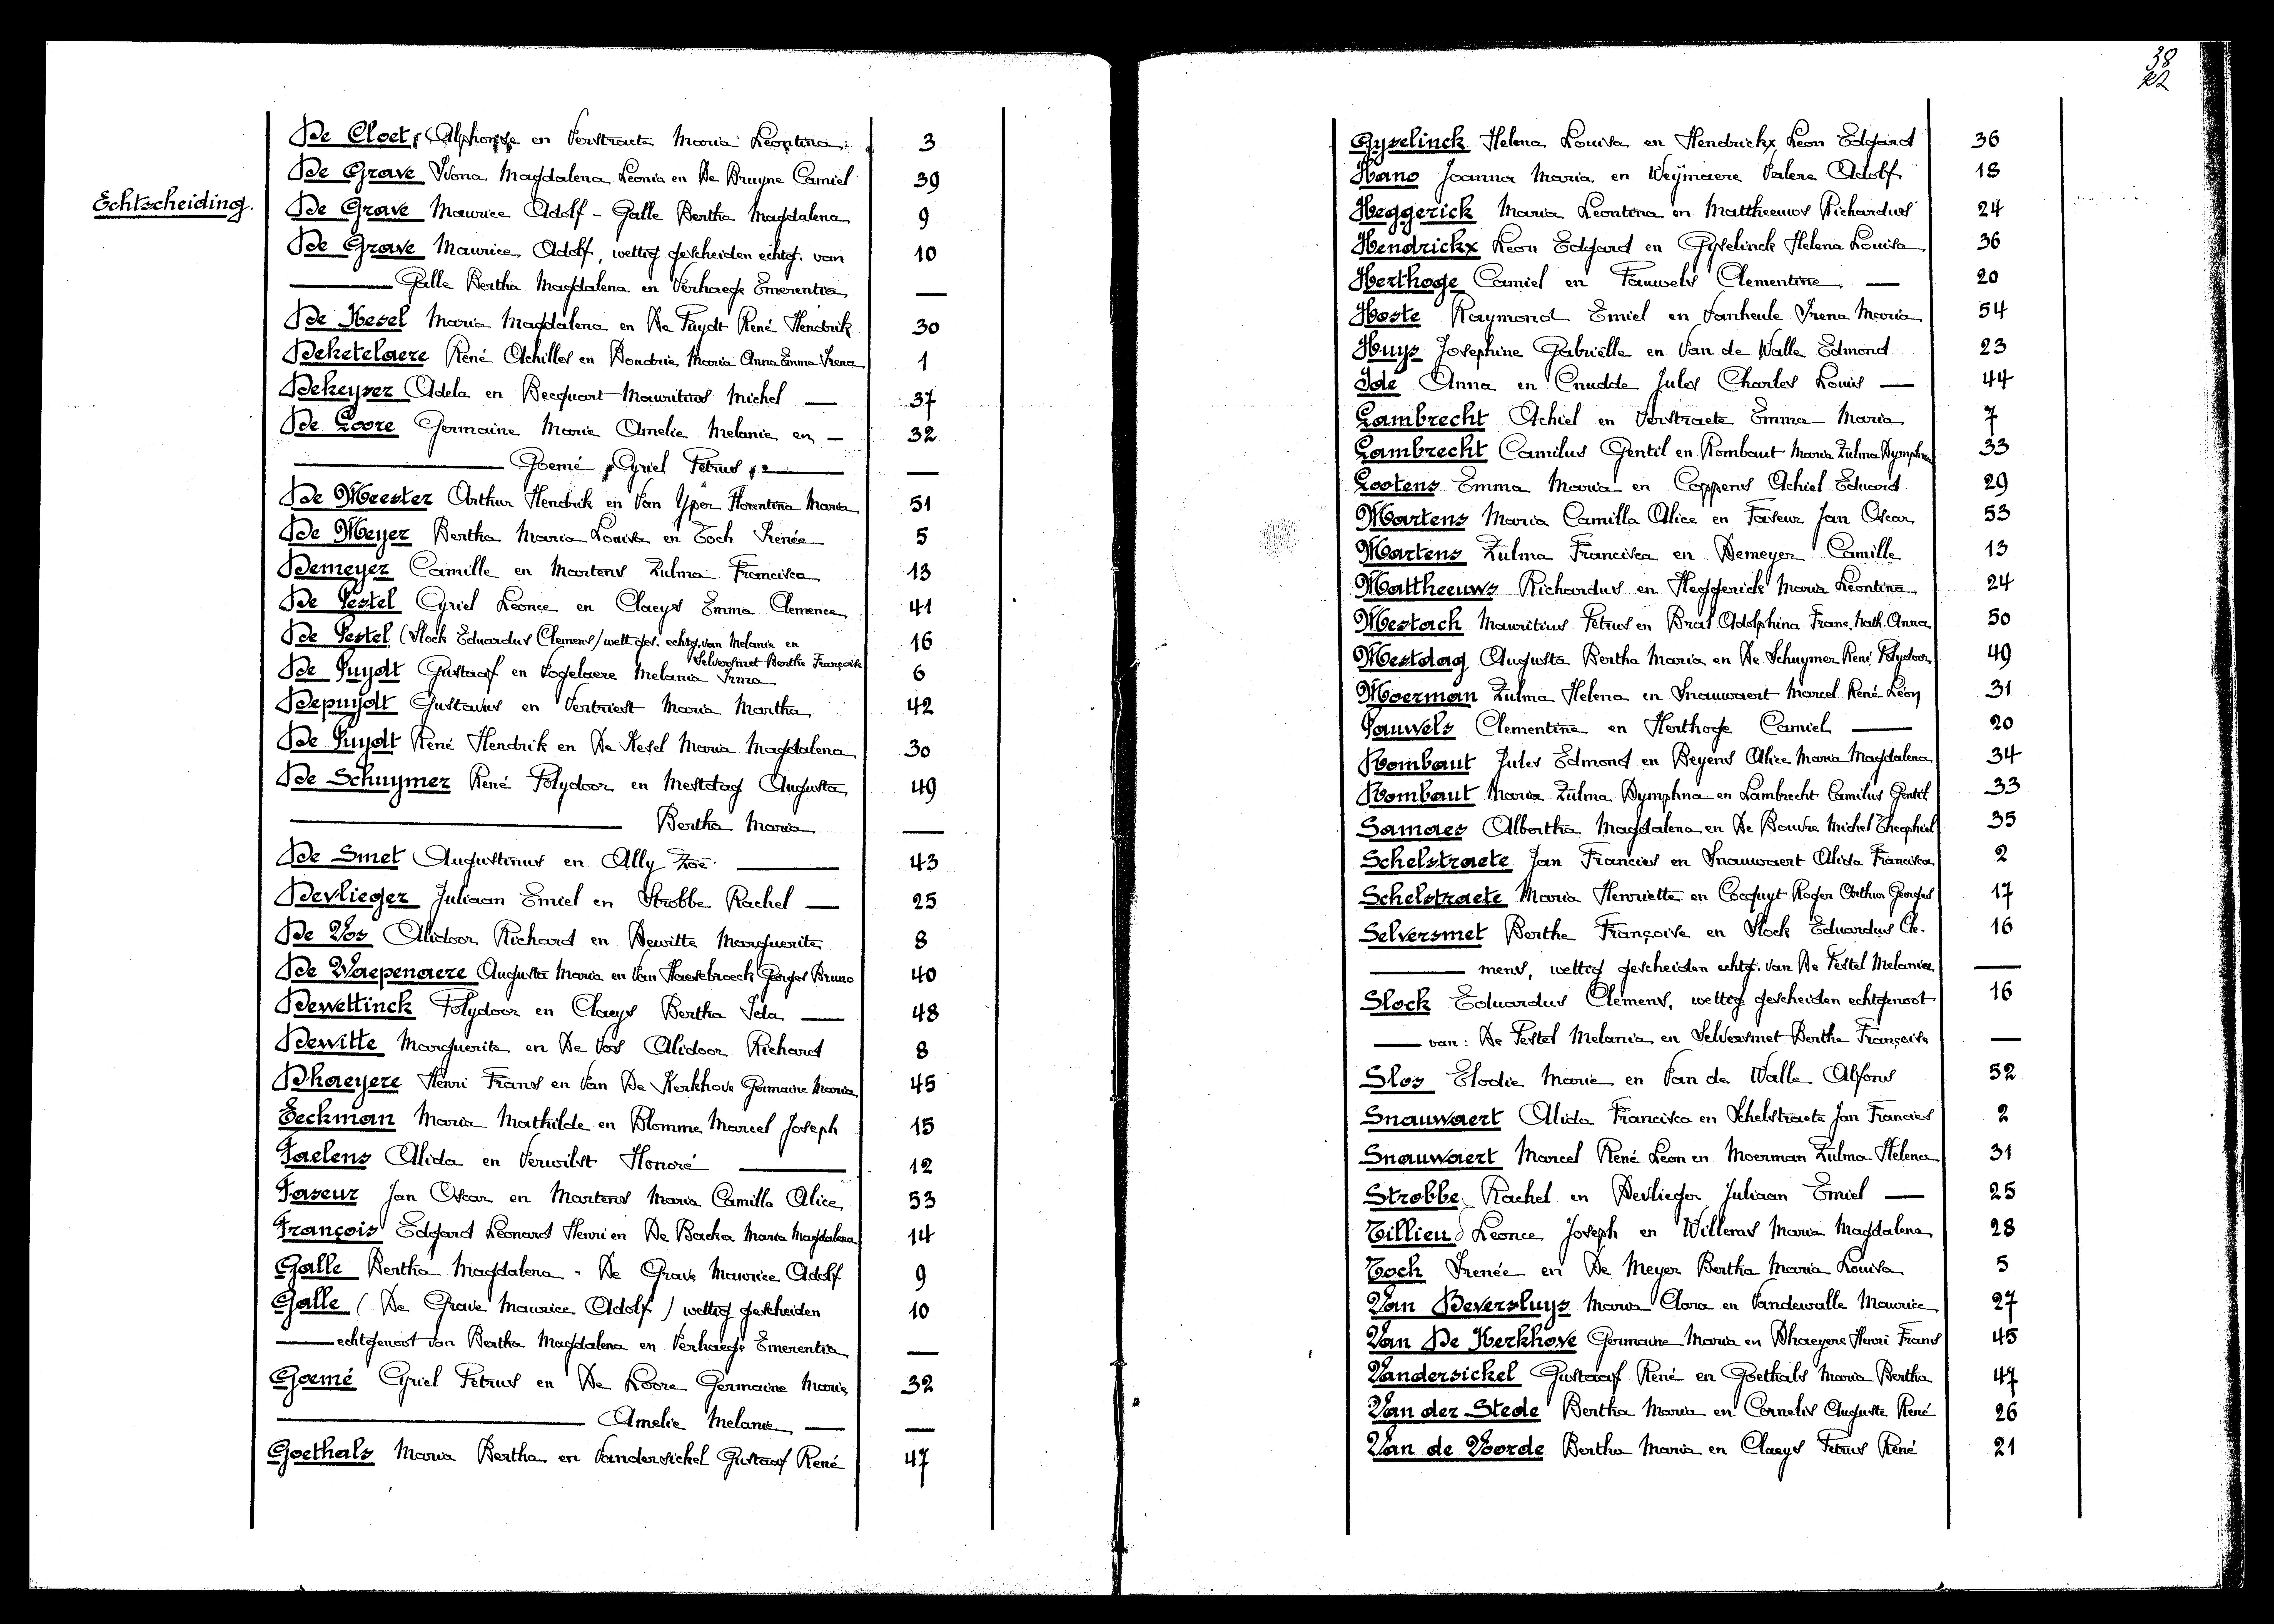 38
Echtscheiding.
De Cloet, Alphonse en Verstraete Maria Leontina. 3
De Grave Ivona Magdalena Leonia en De Bruyne Camiel 39
De Grave Maurice Adolf - Galle Bertha Magdalena 9
De Grave Maurice Adolf, wettig gescheiden echtg. van 10
Galle Bertha Magdalena en Verhaege Emerentia —
De Kesel Maria Magdalena en De Puydt René Hendrik 30
Deketelaere René Achilles en Boudrie Maria Anna Emma Irena 1
Dekeyser Adela en Becquart Mauritius Michel — 37
De Loore Germaine Marie Amelie Melanie en — 32
Goemé Cyriel Petrus —
De Meester Arthur Hendrik en Van Yper Florentina Maria 51
De Meyer Bertha Maria Louisa en Toch Irenée 5
Demeyer Camille en Martens Zulma Francisca 13
De Pestel Cyriel Leonce en Claeys Emma Clemence 41
De Pestel (Slock Eduardus Clemens) wett. ges. echtg. van Melanie en 16
Selversmet Berthe Françoise
De Puydt Gustaaf en Vogelaere Melania Irma 6
Depuydt Gustavus en Verbriest Maria Martha 42
De Puydt René Hendrik en De Kesel Maria Magdalena 30
De Schuymer René Polydoor en Mestdag Augusta 49
Bertha Maria —
De Smet Augustinus en Ally Zoë 43
Devlieger Juliaan Emiel en Strobbe Rachel — 25
De Vos Alidoor Richard en Dewitte Marguerite 8
De Waepenaere Augusta Maria en Van Haesebroeck Georges Bruno 40
Dewettinck Polydoor en Claeys Bertha Ida — 48
Dewitte Marguerite en De Vos Alidoor Richard 8
Dhaeyere Henri Frans en Van De Kerkhove Germaine Maria 45
Eeckman Maria Mathilde en Blomme Marcel Joseph 15
Faelens Alida en Verwilst Honoré 12
Faseur Jan Oscar en Martens Maria Camilla Alice 53
François Edgard Leonard Henri en De Backer Maria Magdalena 14
Galle Bertha Magdalena - De Grave Maurice Adolf 9
Galle (De Grave Maurice Adolf) wettig gescheiden 10
echtgenoot van Bertha Magdalena en Verhaege Emerentia —
Goemé Cyriel Petrus en De Loore Germaine Marie 32
Amelie Melanie — —
Goethals Maria Bertha en Vandersickel Gustaaf René 47
Gyselinck Helena Louisa en Hendrickx Leon Edgard 36
Hano Joanna Maria en Weymaere Valere Adolf 18
Heggerick Maria Leontina en Mattheeuws Richardus 24
Hendrickx Leon Edgard en Gyselinck Helena Louisa 36
Herthoge Camiel en Pauwels Clementine — 20
Hoste Raymond Emiel en Vanheule Irena Maria 54
Huys Josephine Gabriëlle en Van de Walle Edmond 23
Ide Anna en Cnudde Jules Charles Louis — 44
Lambrecht Achiel en Verstraete Emma Maria 7
Lambrecht Camilus Gentil en Rombaut Maria Zulma Dymphna 33
Lootens Emma Maria en Coppens Achiel Eduard 29
Martens Maria Camilla Alice en Faseur Jan Oscar 53
Martens Zulma Francisca en Demeyer Camille 13
Mattheeuws Richardus en Heggerick Maria Leontina 24
Mestach Mauritius Petrus en Bral Adolphina Frans. Nath. Anna 50
Mestdag Augusta Bertha Maria en De Schuymer René Polydoor 49
Moerman Zulma Helena en Snauwaert Marcel René Léon 31
Pauwels Clementine en Herthoge Camiel — 20
Rombaut Jules Edmond en Beyens Alice Maria Magdalena 34
Rombaut Maria Zulma Dymphna en Lambrecht Camilus Gentil 33
Samaes Albertha Magdalena en De Bouvre Michel Theophiel 35
Schelstraete Jan Francies en Snauwaert Alida Francisca 2
Schelstraete Maria Henriette en Cocquyt Roger Arthur Georges 17
Selversmet Berthe Françoise en Slock Eduardus Cle- 16
mens, wettig gescheiden echtg. van De Pestel Melanie —
Slock Eduardus Clemens, wettig gescheiden echtgenoot 16
van: De Pestel Melania en Selversmet Berthe Françoise —
Slos Elodie Marie en Van de Walle Alfons 52
Snauwaert Alida Francisca en Schelstraete Jan Francies 2
Snauwaert Marcel René Leon en Moerman Zulma Helena 31
Strobbe Rachel en Devlieger Juliaan Emiel — 25
Tillieu Leonce Joseph en Willems Maria Magdalena 28
Toch Irenée en De Meyer Bertha Maria Louisa 5
Van Beversluys Maria Clara en Vandewalle Maurice 27
Van De Kerkhove Germaine Maria en Dhaeyere Henri Frans 45
Vandersickel Gustaaf René en Goethals Maria Bertha 47
Van der Stede Bertha Maria en Cornelis Auguste René 26
Van de Voorde Bertha Maria en Claeys Petrus René 21